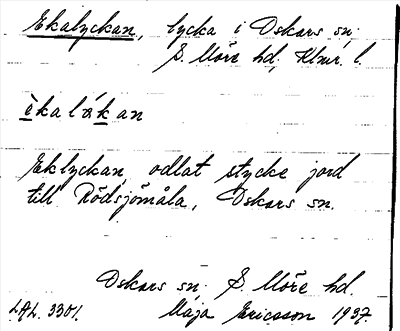 Ekalyckan, lycka i Oskars sn.
S. Möre hd, Klmr. l.
èkalákan
Eklyckan, odlat stycke jord
till Rödsjömåla, Oskars sn.
Oskars sn. S. Möre hd.
LAL. 3301. Maja Ericsson 1937.